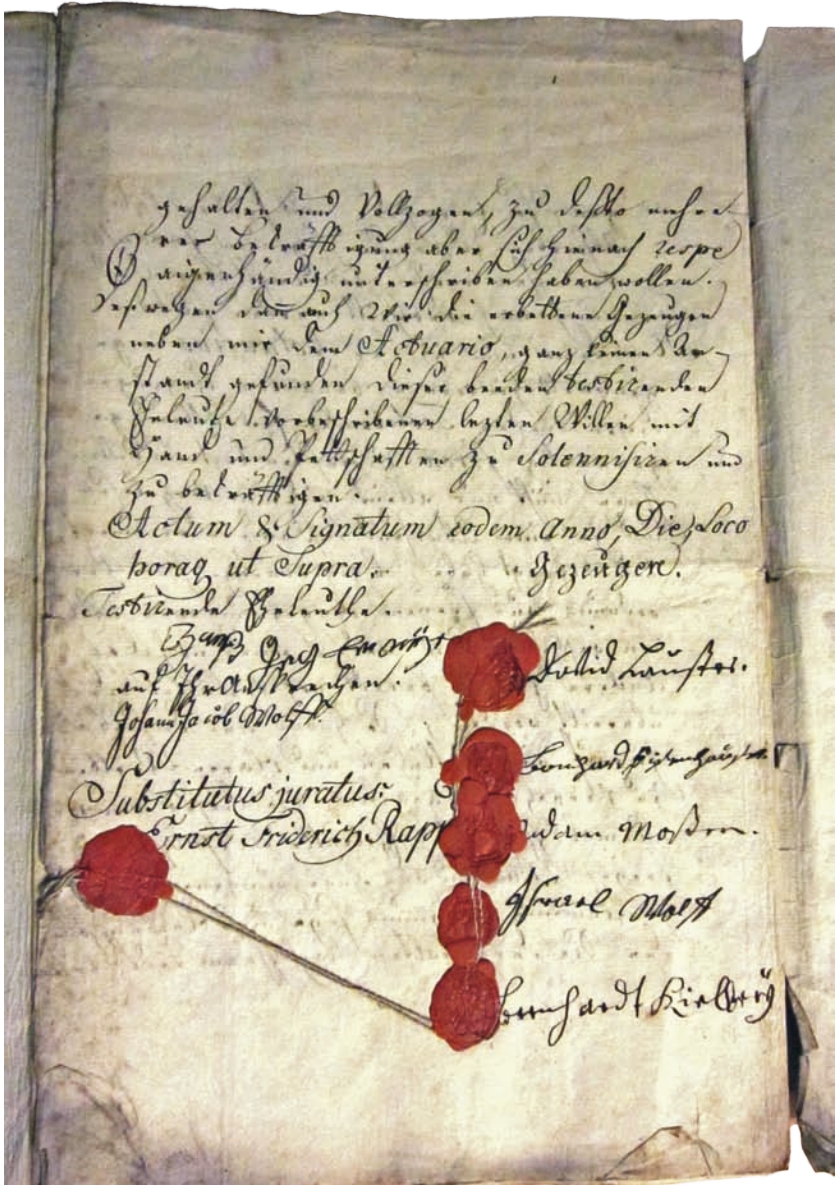 gehalten und Vollzogen, zu desto mehre-
rer bekräfftigung aber sich hienach respe
aigenhändig unterschriben haben wollen.
Deßwegen dann auch Wir die erbettene Gezeugen
neben mir dem Actuario, ganz keinen An-
standt gefunden dieser beeden testirenden
Eheleuthe vorbeschribenen lezten Willen mit
Hand und Pettschafften zu Solennisiren und
zu bekräfftigen.
Actum & Signatum eodem Anno, Die, Loco
horaq ut Supra.
Gezeugen.
Testirende Eheleuthe.
Hanß
auf Ihr Ansprechen.
Johann Jacob Wolff.
David Lauster.
Substitutus juratus:
Ernst Friderich Rapp
Adam
Israel Wolff
Bernhardt